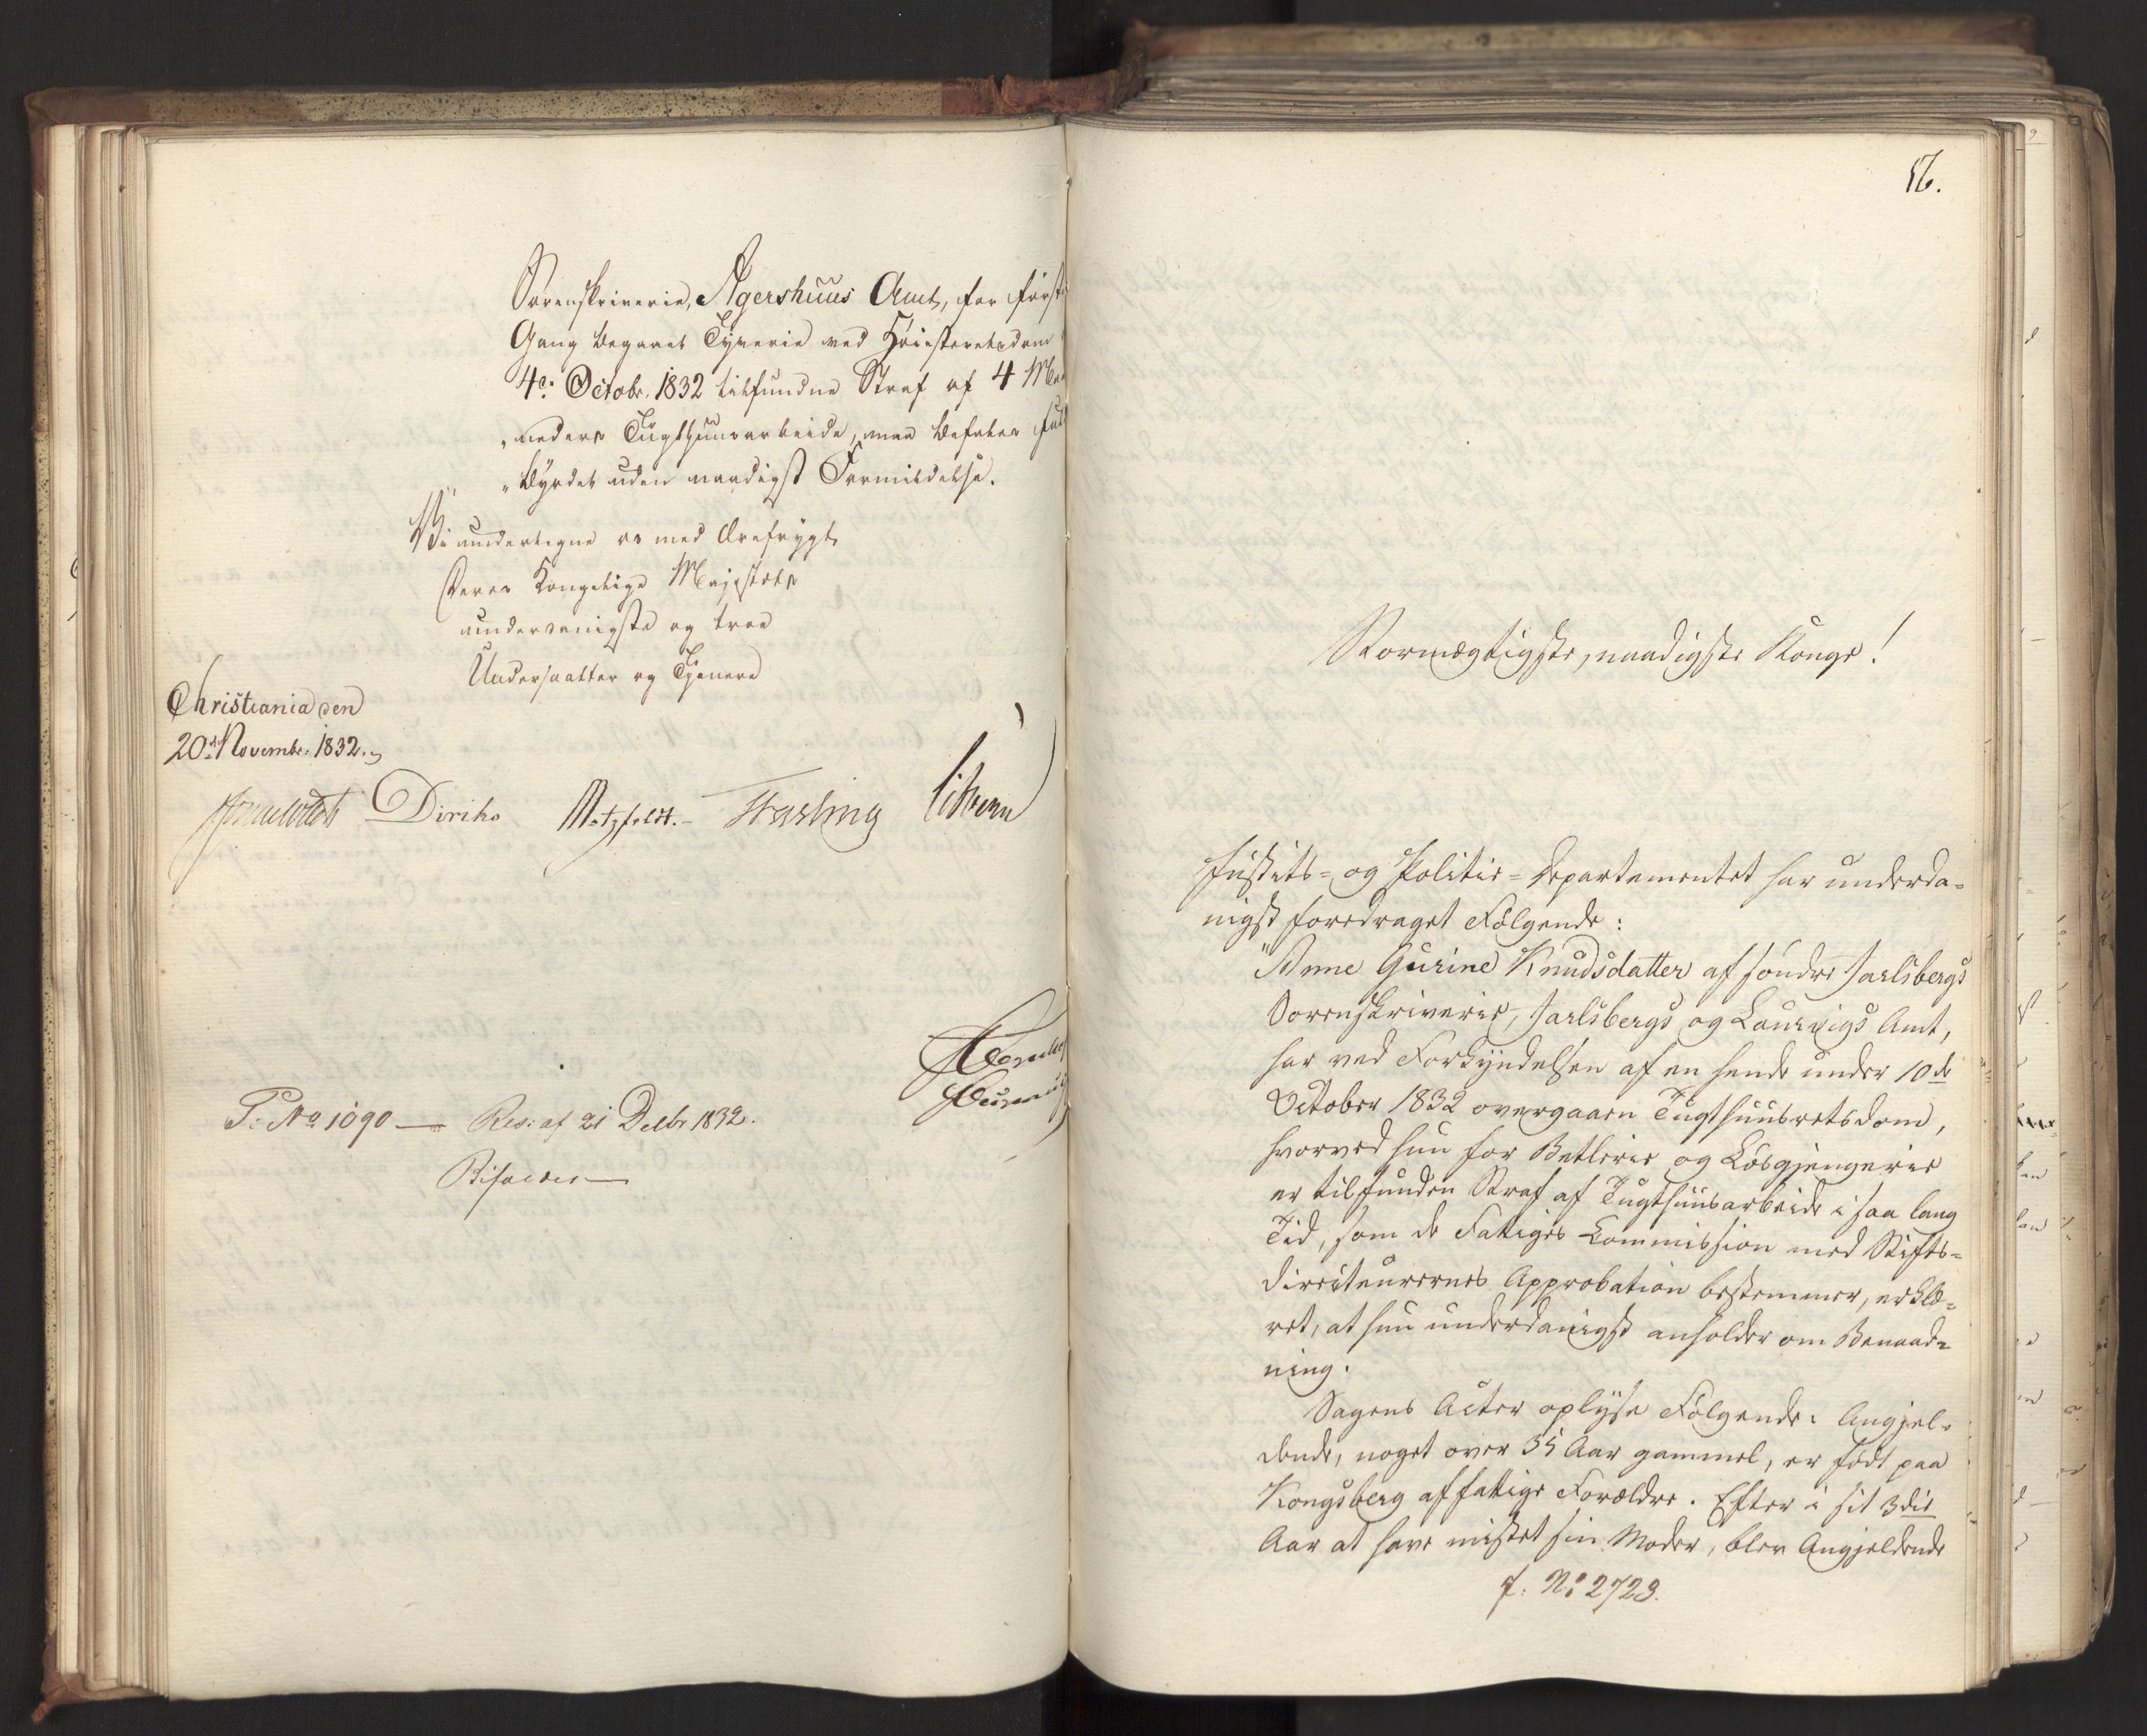 Sorenskriverie, Agershuus Amt, for første
Gang begaaet Tyverie ved Høiesteretsdom
4de Octobr. 1832 tilfundne Straf af 4 Maa
„neders Tugthuusarbeide, maa befales fuld
„byrdet uden naadigst Formildelse.
Vi undertegne os med Ærefrygt
Deres Kongelige Majestæts
underdanigste og troe
Undersaatter og Tjenere
Christiania den
20de Novembr. 1832.
Diriks Motzfeldt. Fasting
P: No 1090 — Res: af 21 Decbr 1832.
Bifaldes
56.
Stormægtigste, naadigste Konge!
Justits- og Politie-Departementet har underda-
nigst foredraget Følgende:
"Anne Gurine Knudsdatter af søndre Jarlsbergs
Sorenskriverie, Jarlsbergs og Laurvigs Amt,
har ved Forkyndelsen af en hende under 10de
October 1832 overgaaen Tugthuusretsdom,
hvorved hun for Betlerie og Løsgjængerie
er tilfunden Straf af Tugthuusarbeide i saa lang
Tid, som de Fattiges Commission med Stifts-
directeurernes Approbation bestemmer, erklæ-
ret, at hun underdanigst anholder om Benaad-
ning.
Sagens Acter oplyse Følgende: Angjel-
dende, noget over 35 Aar gammel, er født paa
Kongsberg af fattige Forældre. Efter i sit 3die
Aar at have mistet sin Moder, blev Angjeldende
J: No 2723.